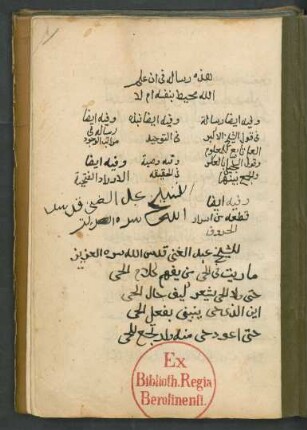 هذه رسالة في ان علم
الله محيط بنفسه ام لا
وفيه ايضا رسالة
في قول الشيخ الاكبر
العلم تابع للمعلوم
وقول الشيخ
والجمع بينهما
وفيه ايضا نبذة
في التوحيد
وفيه وصية
في الحقيقة
وفيه ايضا
رسالة في
مراتب الوجود
وفيه ايضا
الاوراد الفتحية
وفيه ايضا
قطعة من اسرار
الحروف
للشيخ عبد الغني قدس
الله سره العزيز
للشيخ عبد الغني قدس الله سره العزيز
ما ريت في الحي من يفهم كلام الحي
حتى ولا الحي يشعر كيف حال الحي
اين الذي حي بفعل الحي
حتى اعود حي منه ولد يجمع للحي
Ex
Biblioth. Regia
Berolinensi.